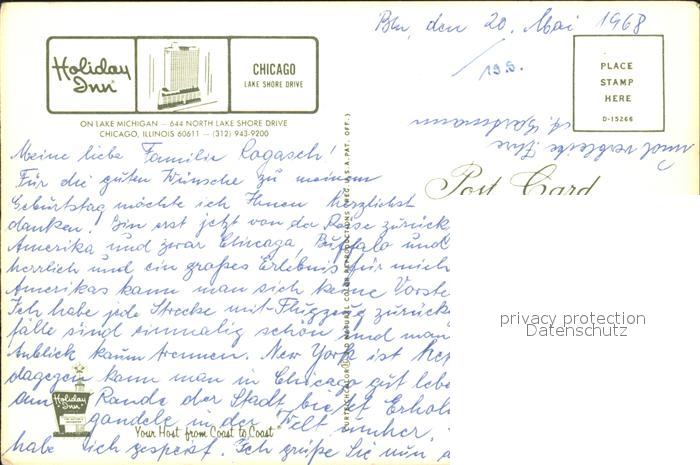 Bln, den 20. Mai 1968
/19.5.
Holiday Inn
CHICAGO
LAKE SHORE DRIVE
ON LAKE MICHIGAN — 644 NORTH LAKE SHORE DRIVE
CHICAGO, ILLINOIS 60611 — (312) 943-9200
PLACE
STAMP
HERE
D-15266
und verbleibe Ihre
Post Card
Meine liebe Familie Rogasch!
Für die guten Wünsche zu meinem
Geburtstag möchte ich Ihnen herzlichst
danken! Bin erst jetzt von der Reise zurück
Amerika und zwar Chicago, Buffalo und
herrlich und ein großes Erlebnis für mich
Amerikas kann man sich keine Vorste
Ich habe jede Strecke mit Flugzeug zurück
fälle sind einmalig schön und man
Anblick kaum trennen. New York ist
dagegen kann man in Chicago gut lebe
am Rande der Stadt bietet Erhol
in der Welt umher.
habe ich gespart. Ich grüße Sie nun
Holiday Inn
Your Host from Coast to Coast
CURTEICHCOLOR® 3-D NATURAL COLOR REPRODUCTIONS (REG. U.S.A. PAT. OFF.)
privacy protection
Datenschutz